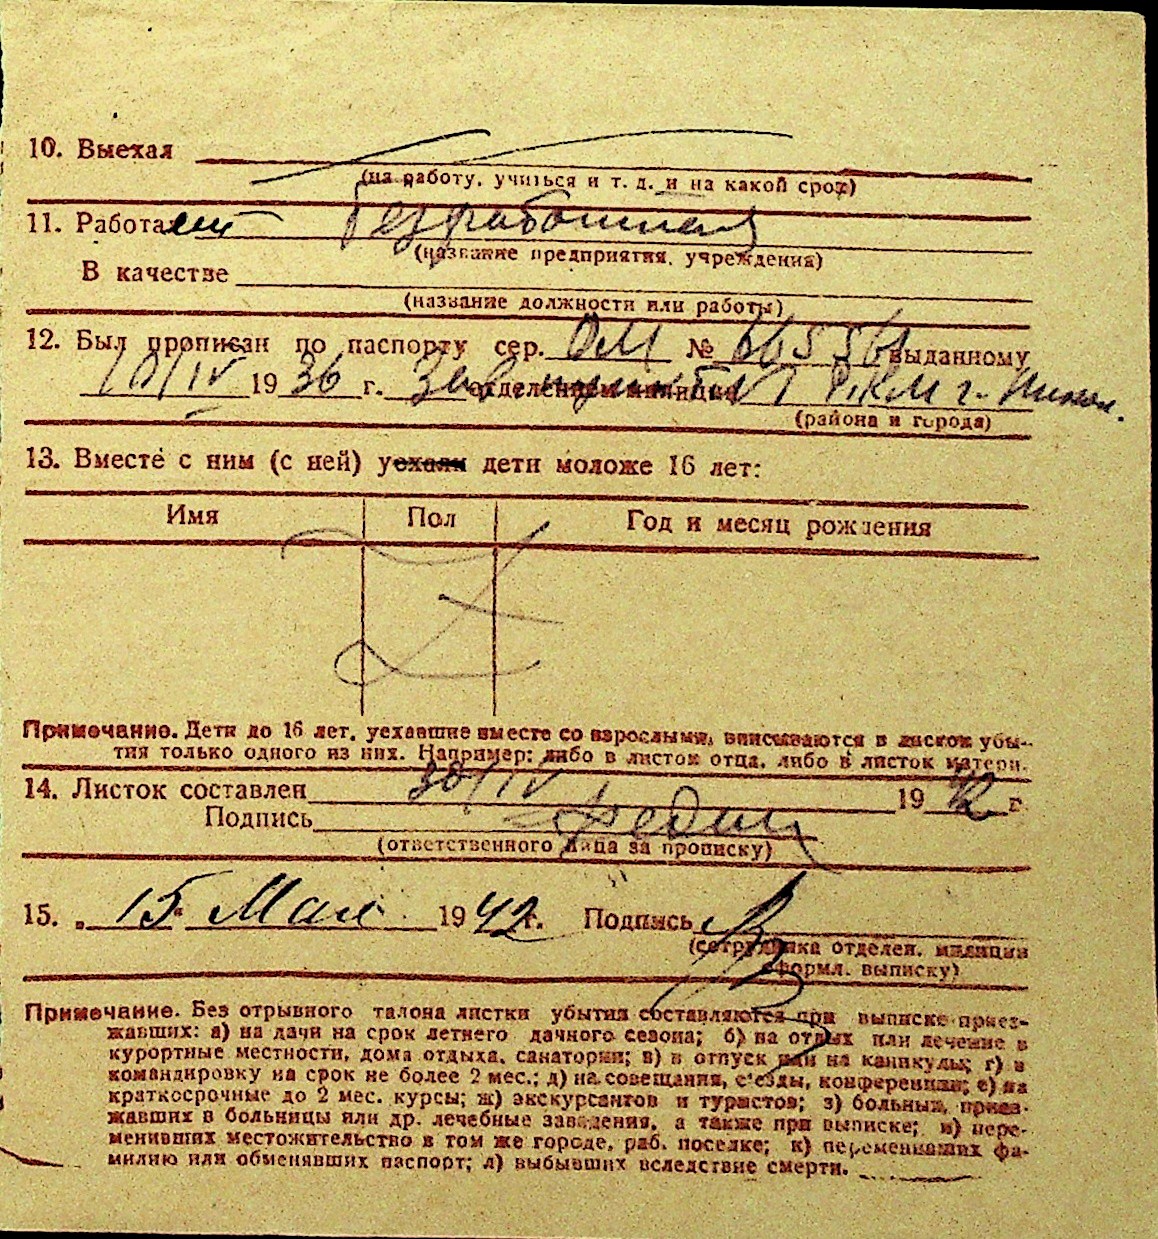 10. Выехал
(на работу, учиться и т. д. и на какой срок)
11. Работает Безработная
(название предприятия, учреждения)
В качестве
(название должности или работы)
12. Был прописан по паспорту сер. ОМ № 665561 выданному
10/IV 1936 г. отделением милиции РКМ г.
(района и города)
13. Вместе с ним (с ней) уехали дети моложе 16 лет:
Имя Пол Год и месяц рождения
Примечание. Дети до 16 лет, уехавшие вместе со взрослыми, вписываются в листок убы-
тия только одного из них. Например: либо в листок отца, либо в листок матери.
14. Листок составлен 30/IV 1942 г
Подпись
(ответственного лица за прописку)
15. „ 15 " Мая 1942 г. Подпись
(сотрудника отделен. милиции
оформл. выписку)
Примечание. Без отрывного талона листки убытия составляются при выписке приез-
жавших: а) на дачи на срок летнего дачного сезона; б) на отдых или лечение в
курортные местности, дома отдыха, санатории; в) в отпуск или на каникулы; г) в
командировку на срок не более 2 мес.; д) на совещания, съезды, конференции; е) на
краткосрочные до 2 мес. курсы; ж) экскурсантов и туристов; з) больных, приез-
жавших в больницы или др. лечебные заведения, а также при выписке; и) пере-
менивших местожительство в том же городе, раб. поселке; к) переменивших фа-
милию или обменявших паспорт; л) выбывших вследствие смерти.